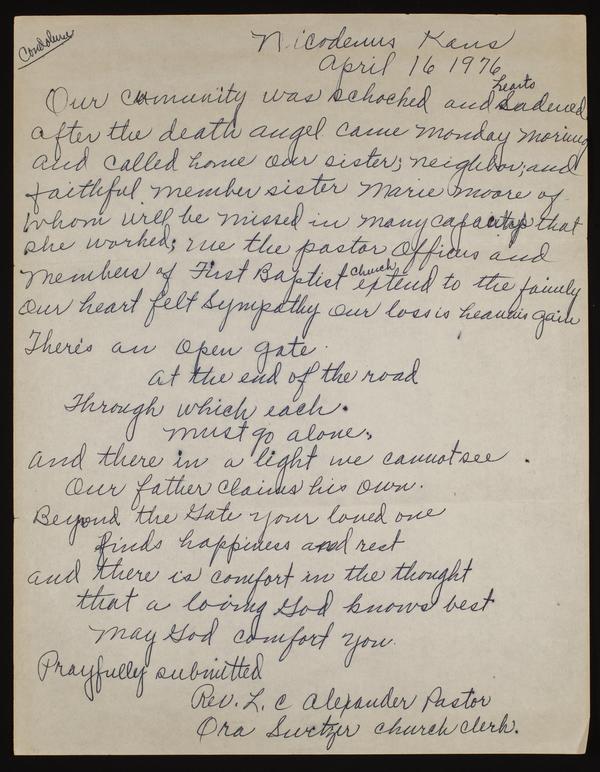 Condolence
Nicodemus Kans
April 16 1976
Our cumunity was schocked and hearts sadened
after the death angel came Monday morning
and called home our sister; neighbor; and
faithful member sister Marie Moore of
whom will be missed in many capacity that
she worked; we the pastor officers and
members of First Baptist church extend to the family
our heart felt sympathy our loss is heavens gain
There's an open gate
at the end of the road
Through which each
must go alone.
and there in a light we cannot see
Our father claims his own.
Beyond the Gate your loved one
finds happiness and rest
and there is comfort in the thought
that a loving God knows best
May God comfort you.
Prayfully submitted
Rev. L. C Alexander Pastor
Ora Switzer church clerk.